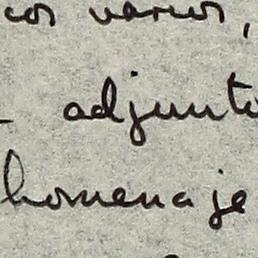 cos varios,
- adjunto
homenaje